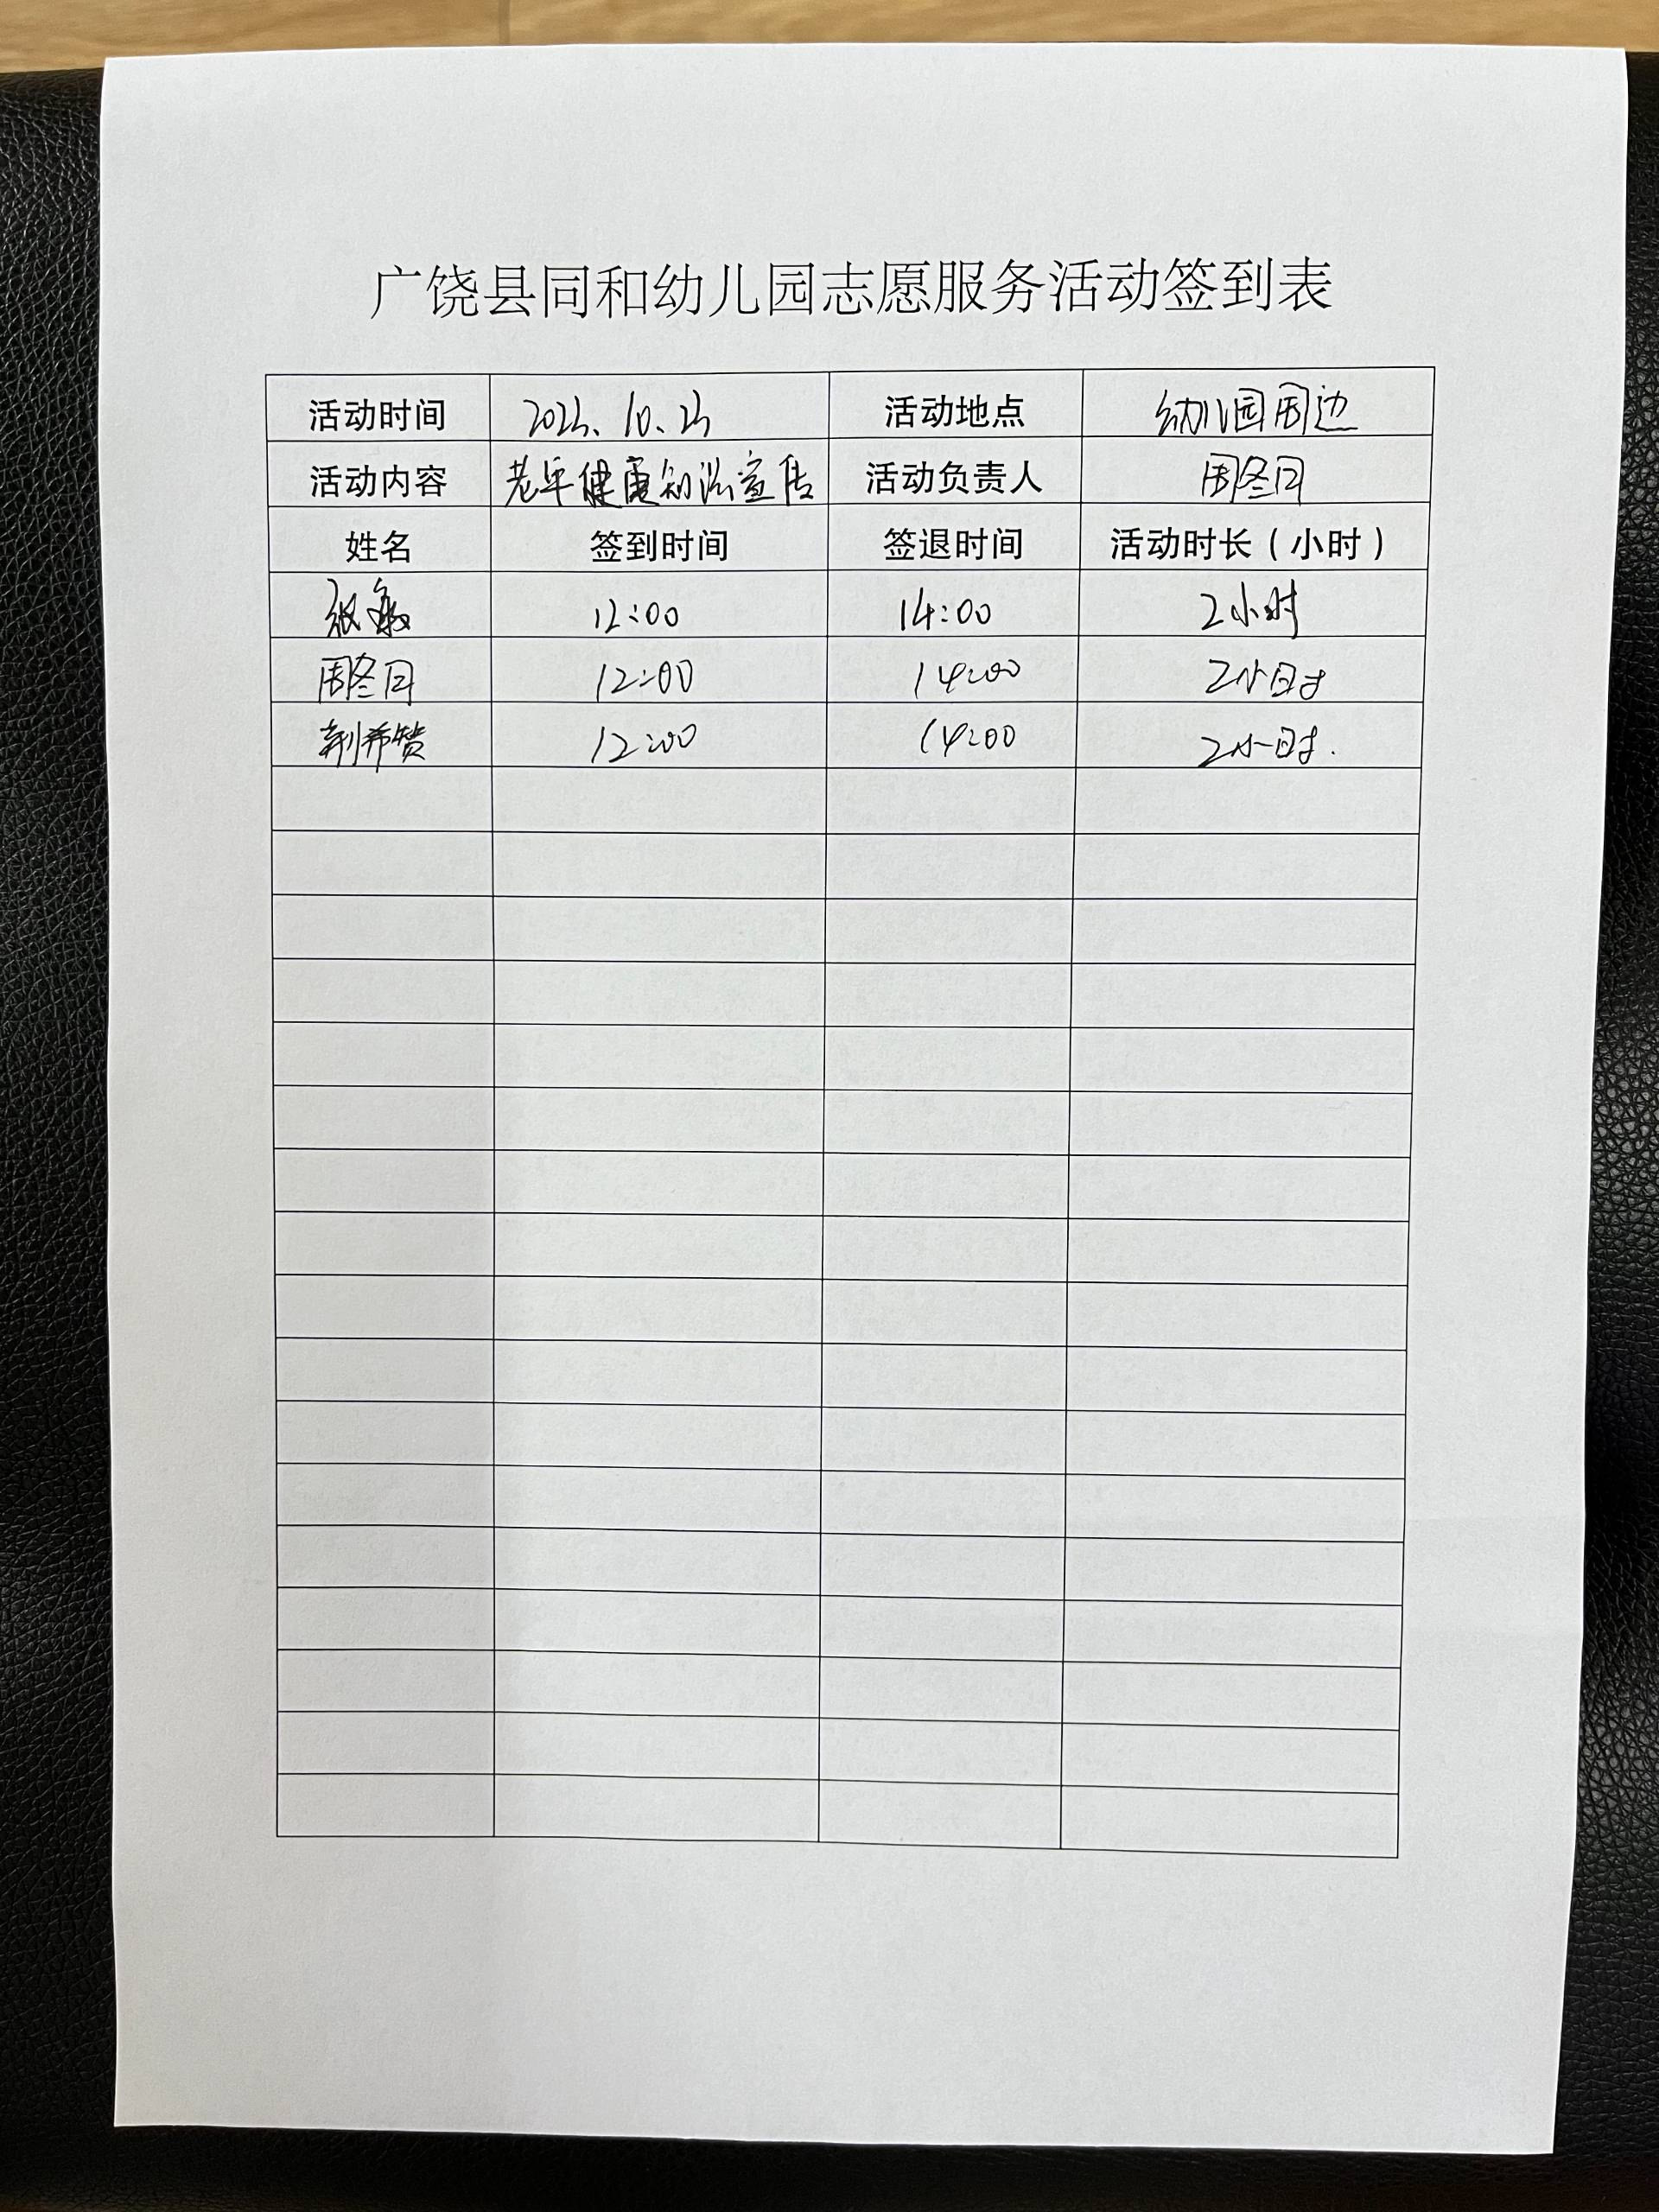 广饶县同和幼儿园志愿服务活动签到表
活动时间 2024.10.24 活动地点 幼儿园周边
活动内容 老年健康知识宣传 活动负责人 周冬日
姓名 签到时间 签退时间 活动时长（小时）
张敏 12:00 14:00 2小时
周冬日 12:00 14:00 2小时
荆希赞 12:00 14:00 2小时.